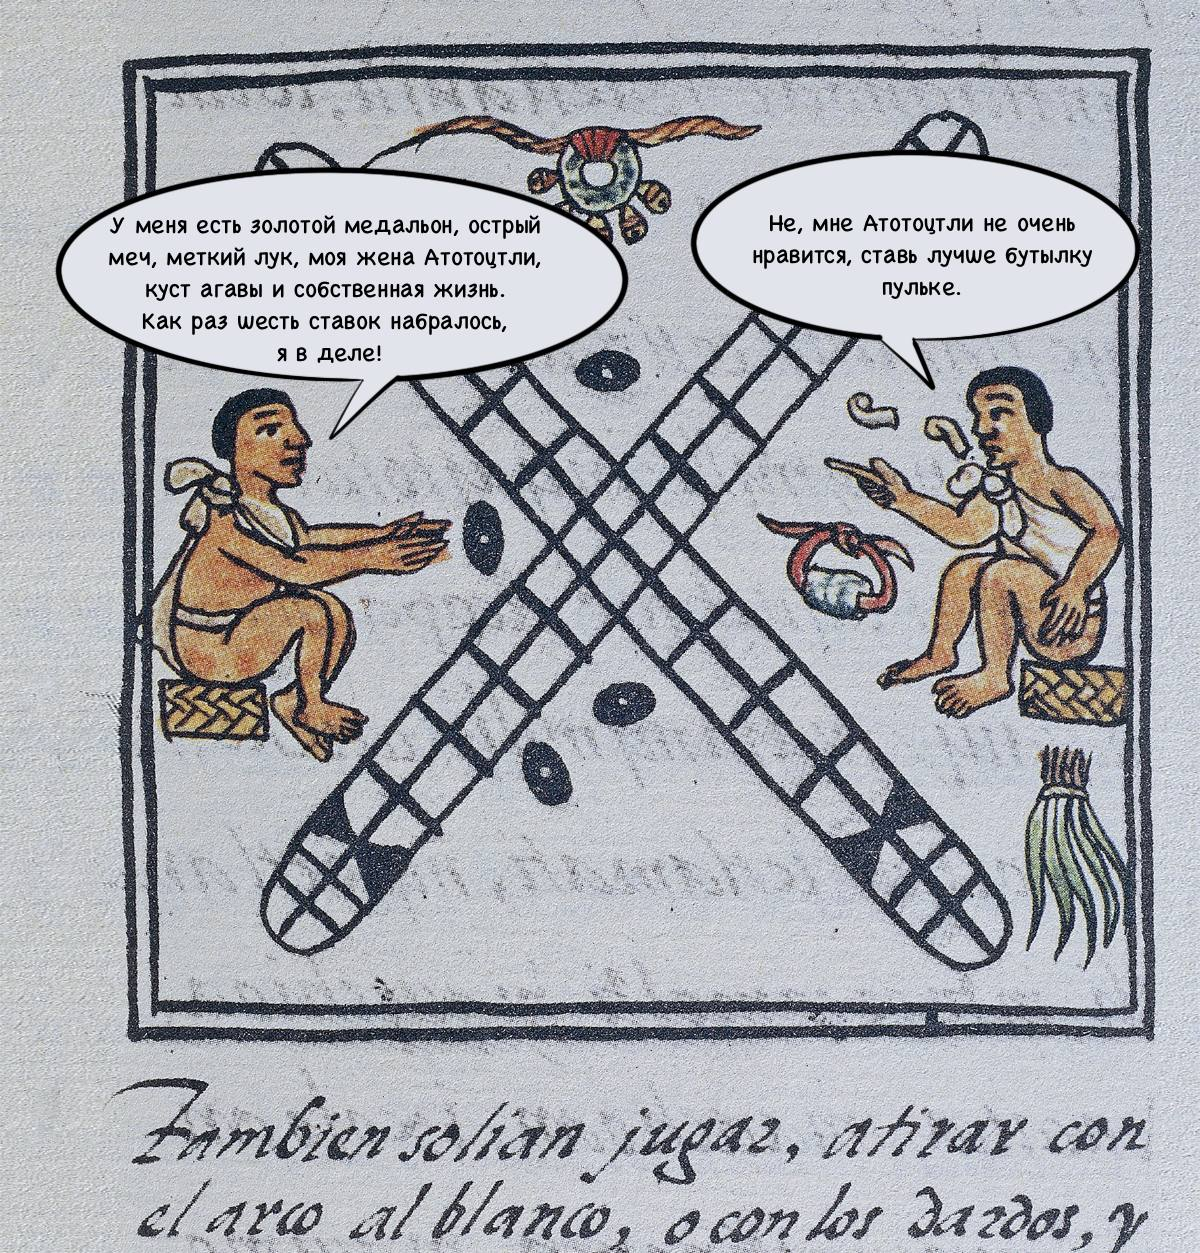 У меня есть золотой медальон, острый
меч, меткий лук, моя жена Атотоцтли,
куст агавы и собственная жизнь.
Как раз шесть ставок набралось,
я в деле!
Не, мне Атотоцтли не очень
нравится, ставь лучше бутылку
пульке.
Tambien solian jugar, atirar con
el arco al blanco, o con los dardos, y